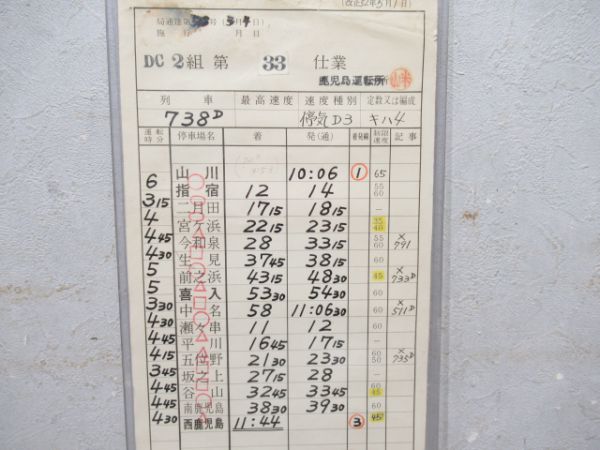 (改正32年5月1日)
月 日
DC 2組 第 33 仕業
鹿児島運転所
列車 最高速度 速度種別 定数又は編成
738D 停気D3 キハ4
運転時分 停車場名 着 発(通) 着発線 制限速度 記事
山川 10:06 1 65
6 指宿 12 14 55 60
3 15 二月田 17 15 18 15 –
4 宮ヶ浜 22 15 23 15 35 40
4 45 今和泉 28 33 15 55 60 × 791
4 30 生見 37 45 38 15 60
5 前之浜 43 15 48 30 45 × 733D
5 喜入 53 30 54 30 60
3 30 中名 58 11:06 30 60 × 511D
4 30 瀬々串 11 12 60
4 45 平川 16 45 17 15 –
4 15 五位野 21 30 23 30 60 50 × 735D
3 45 坂之上 27 15 28 –
4 45 谷山 32 45 33 45 60 45
4 45 南鹿児島 38 30 39 30 60
4 30 西鹿児島 11:44 3 45